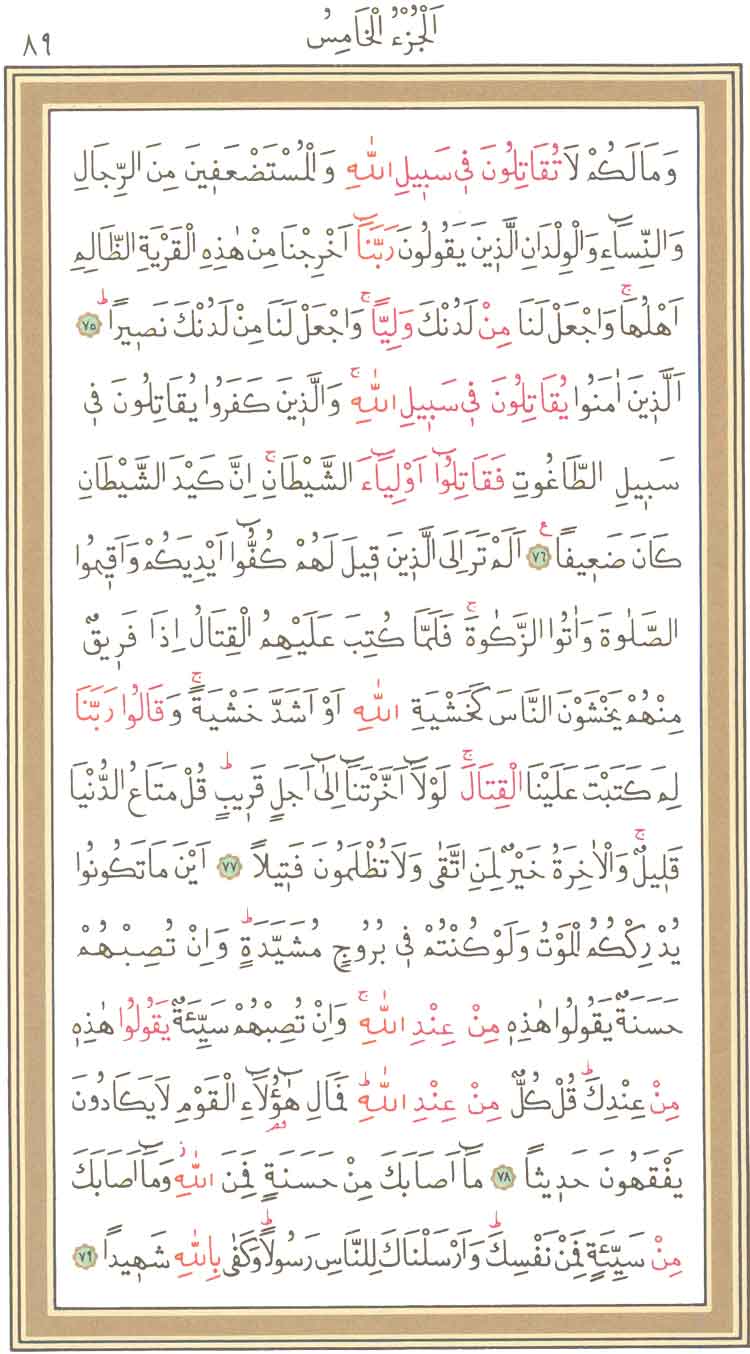 اَلْجُزْءُ الْخَامِسُ
٨٩
وَمَا لَكُمْ لَا تُقَاتِلُونَ ف۪ي سَب۪يلِ اللّٰهِ وَالْمُسْتَضْعَف۪ينَ مِنَ الرِّجَالِ
وَالنِّسَٓاءِ وَالْوِلْدَانِ الَّذ۪ينَ يَقُولُونَ رَبَّنَٓا اَخْرِجْنَا مِنْ هٰذِهِ الْقَرْيَةِ الظَّالِمِ
اَهْلُهَاۚ وَاجْعَلْ لَنَا مِنْ لَدُنْكَ وَلِيًّاۚ وَاجْعَلْ لَنَا مِنْ لَدُنْكَ نَص۪يرًاۜ ٧٥
اَلَّذ۪ينَ اٰمَنُوا يُقَاتِلُونَ ف۪ي سَب۪يلِ اللّٰهِۚ وَالَّذ۪ينَ كَفَرُوا يُقَاتِلُونَ ف۪ي
سَب۪يلِ الطَّاغُوتِ فَقَاتِلُٓوا اَوْلِيَٓاءَ الشَّيْطَانِۚ اِنَّ كَيْدَ الشَّيْطَانِ
كَانَ ضَع۪يفًا ع ٧٦ اَلَمْ تَرَ اِلَى الَّذ۪ينَ ق۪يلَ لَهُمْ كُفُّٓوا اَيْدِيَكُمْ وَاَق۪يمُوا
الصَّلٰوةَ وَاٰتُوا الزَّكٰوةَۚ فَلَمَّا كُتِبَ عَلَيْهِمُ الْقِتَالُ اِذَا فَر۪يقٌ
مِنْهُمْ يَخْشَوْنَ النَّاسَ كَخَشْيَةِ اللّٰهِ اَوْ اَشَدَّ خَشْيَةًۚ وَقَالُوا رَبَّنَا
لِمَ كَتَبْتَ عَلَيْنَا الْقِتَالَۚ لَوْلَٓا اَخَّرْتَنَٓا اِلٰٓى اَجَلٍ قَر۪يبٍۜ قُلْ مَتَاعُ الدُّنْيَا
قَل۪يلٌۚ وَالْاٰخِرَةُ خَيْرٌ لِمَنِ اتَّقٰى وَلَا تُظْلَمُونَ فَت۪يلًا ٧٧ اَيْنَ مَا تَكُونُوا
يُدْرِكْكُمُ الْمَوْتُ وَلَوْ كُنْتُمْ ف۪ي بُرُوجٍ مُشَيَّدَةٍۜ وَاِنْ تُصِبْهُمْ
حَسَنَةٌ يَقُولُوا هٰذِه۪ مِنْ عِنْدِ اللّٰهِۚ وَاِنْ تُصِبْهُمْ سَيِّئَةٌ يَقُولُوا هٰذِه۪
مِنْ عِنْدِكَۜ قُلْ كُلٌّ مِنْ عِنْدِ اللّٰهِۜ فَمَالِ هٰٓؤُ۬لَٓاءِ الْقَوْمِ لَا يَكَادُونَ
يَفْقَهُونَ حَد۪يثًا ٧٨ مَٓا اَصَابَكَ مِنْ حَسَنَةٍ فَمِنَ اللّٰهِۘ وَمَٓا اَصَابَكَ
مِنْ سَيِّئَةٍ فَمِنْ نَفْسِكَۜ وَاَرْسَلْنَاكَ لِلنَّاسِ رَسُولًاۜ وَكَفٰى بِاللّٰهِ شَه۪يدًا ٧٩